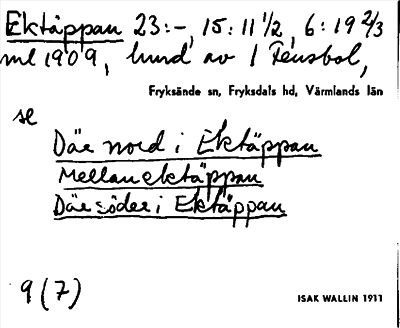 Ektäppan 23:-, 15:11 1/2, 6:19 2/3
ml 1909, hmd av 1 Fensbol,
Fryksände sn, Fryksdals hd, Värmlands län
se
Där nord i Ektäppan
Mellanektäppan
Där söder i Ektäppan
9 (7)
ISAK WALLIN 1911